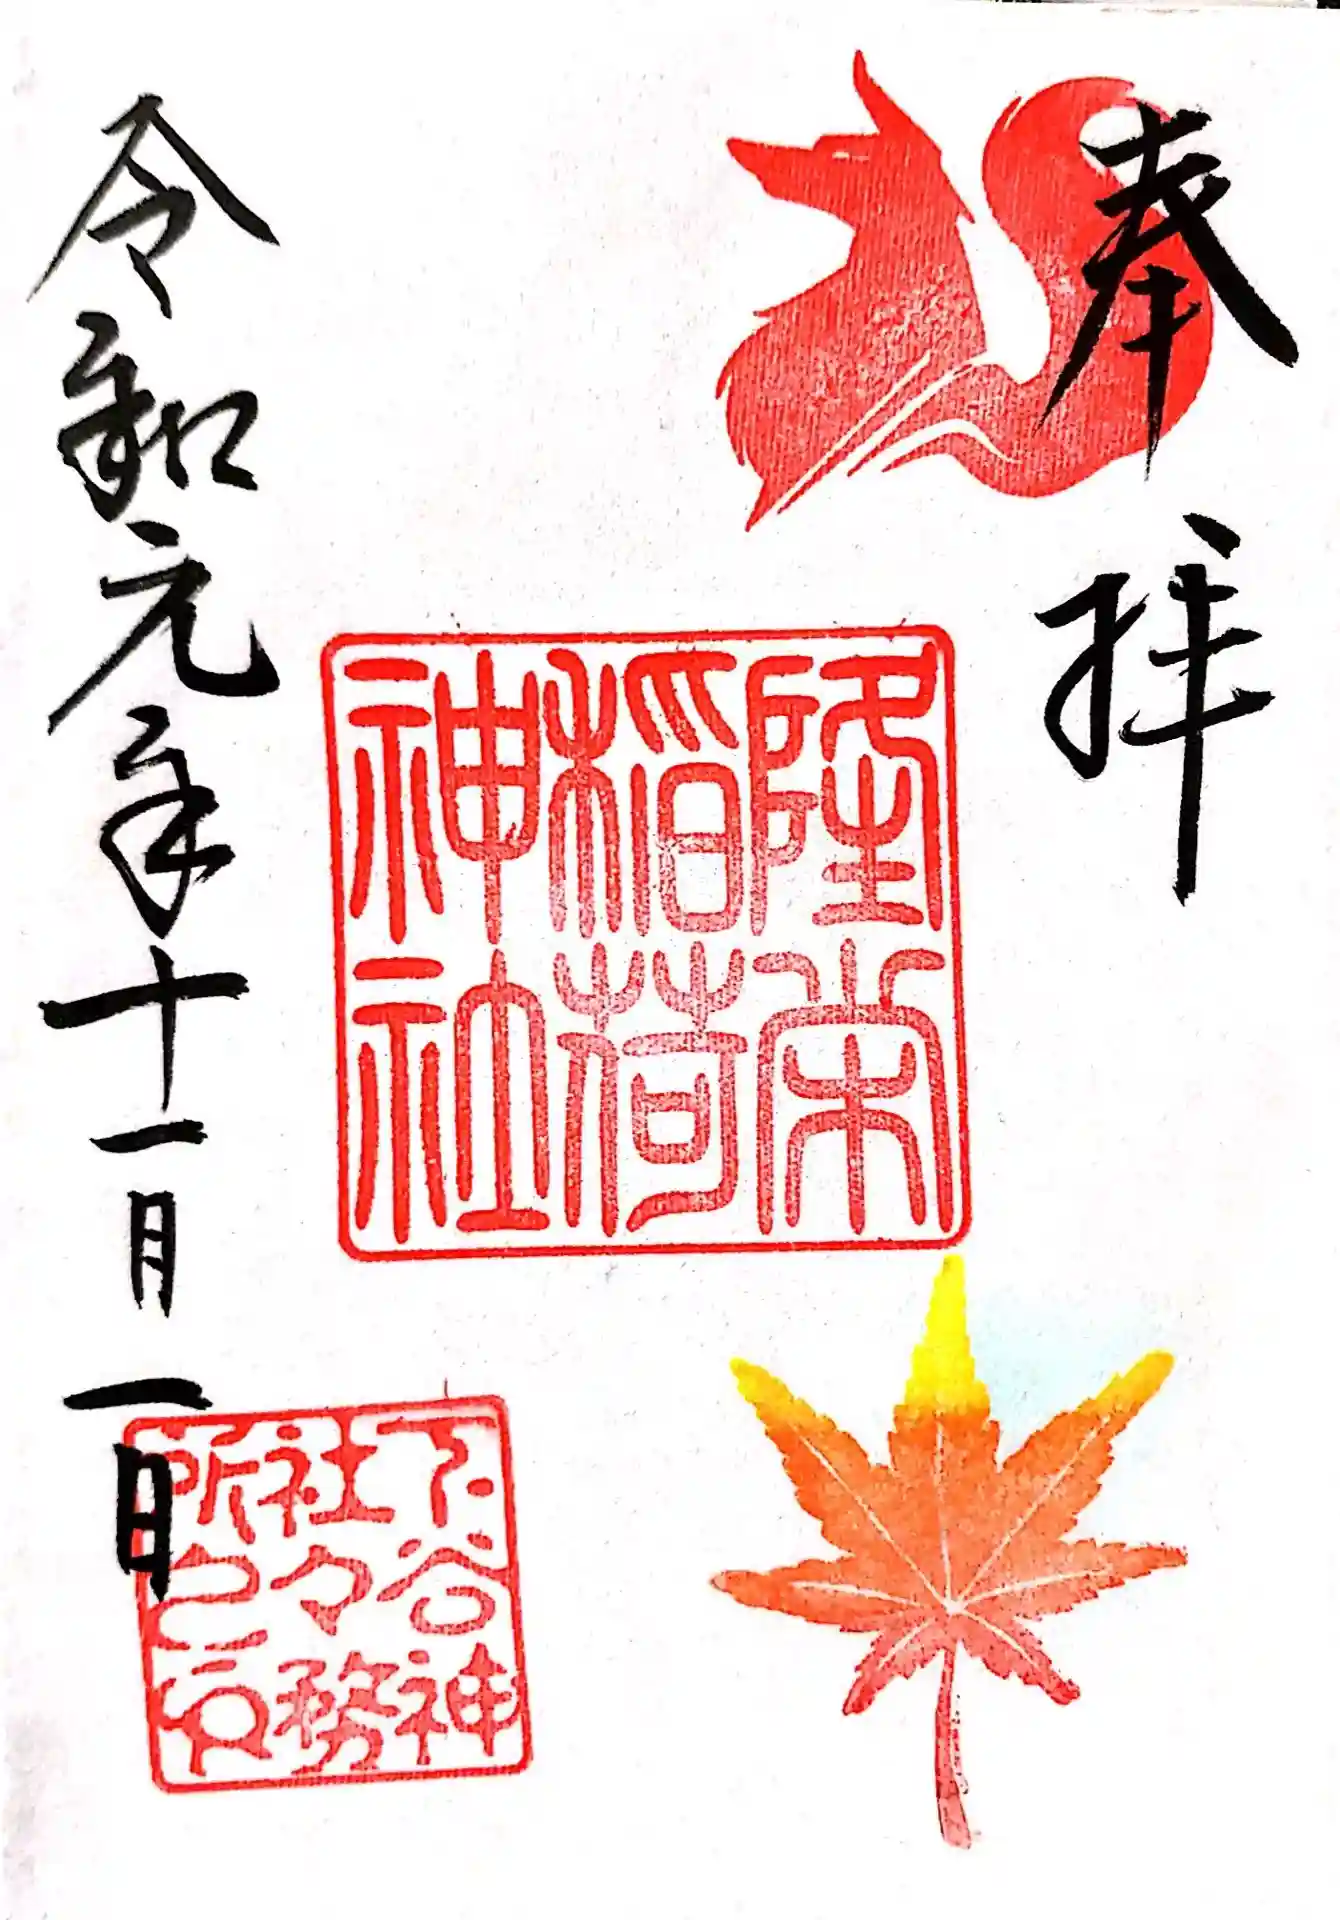 奉拝
隆栄
稲荷
神社
令和元年十一月一日
下谷神
社々務
所之印